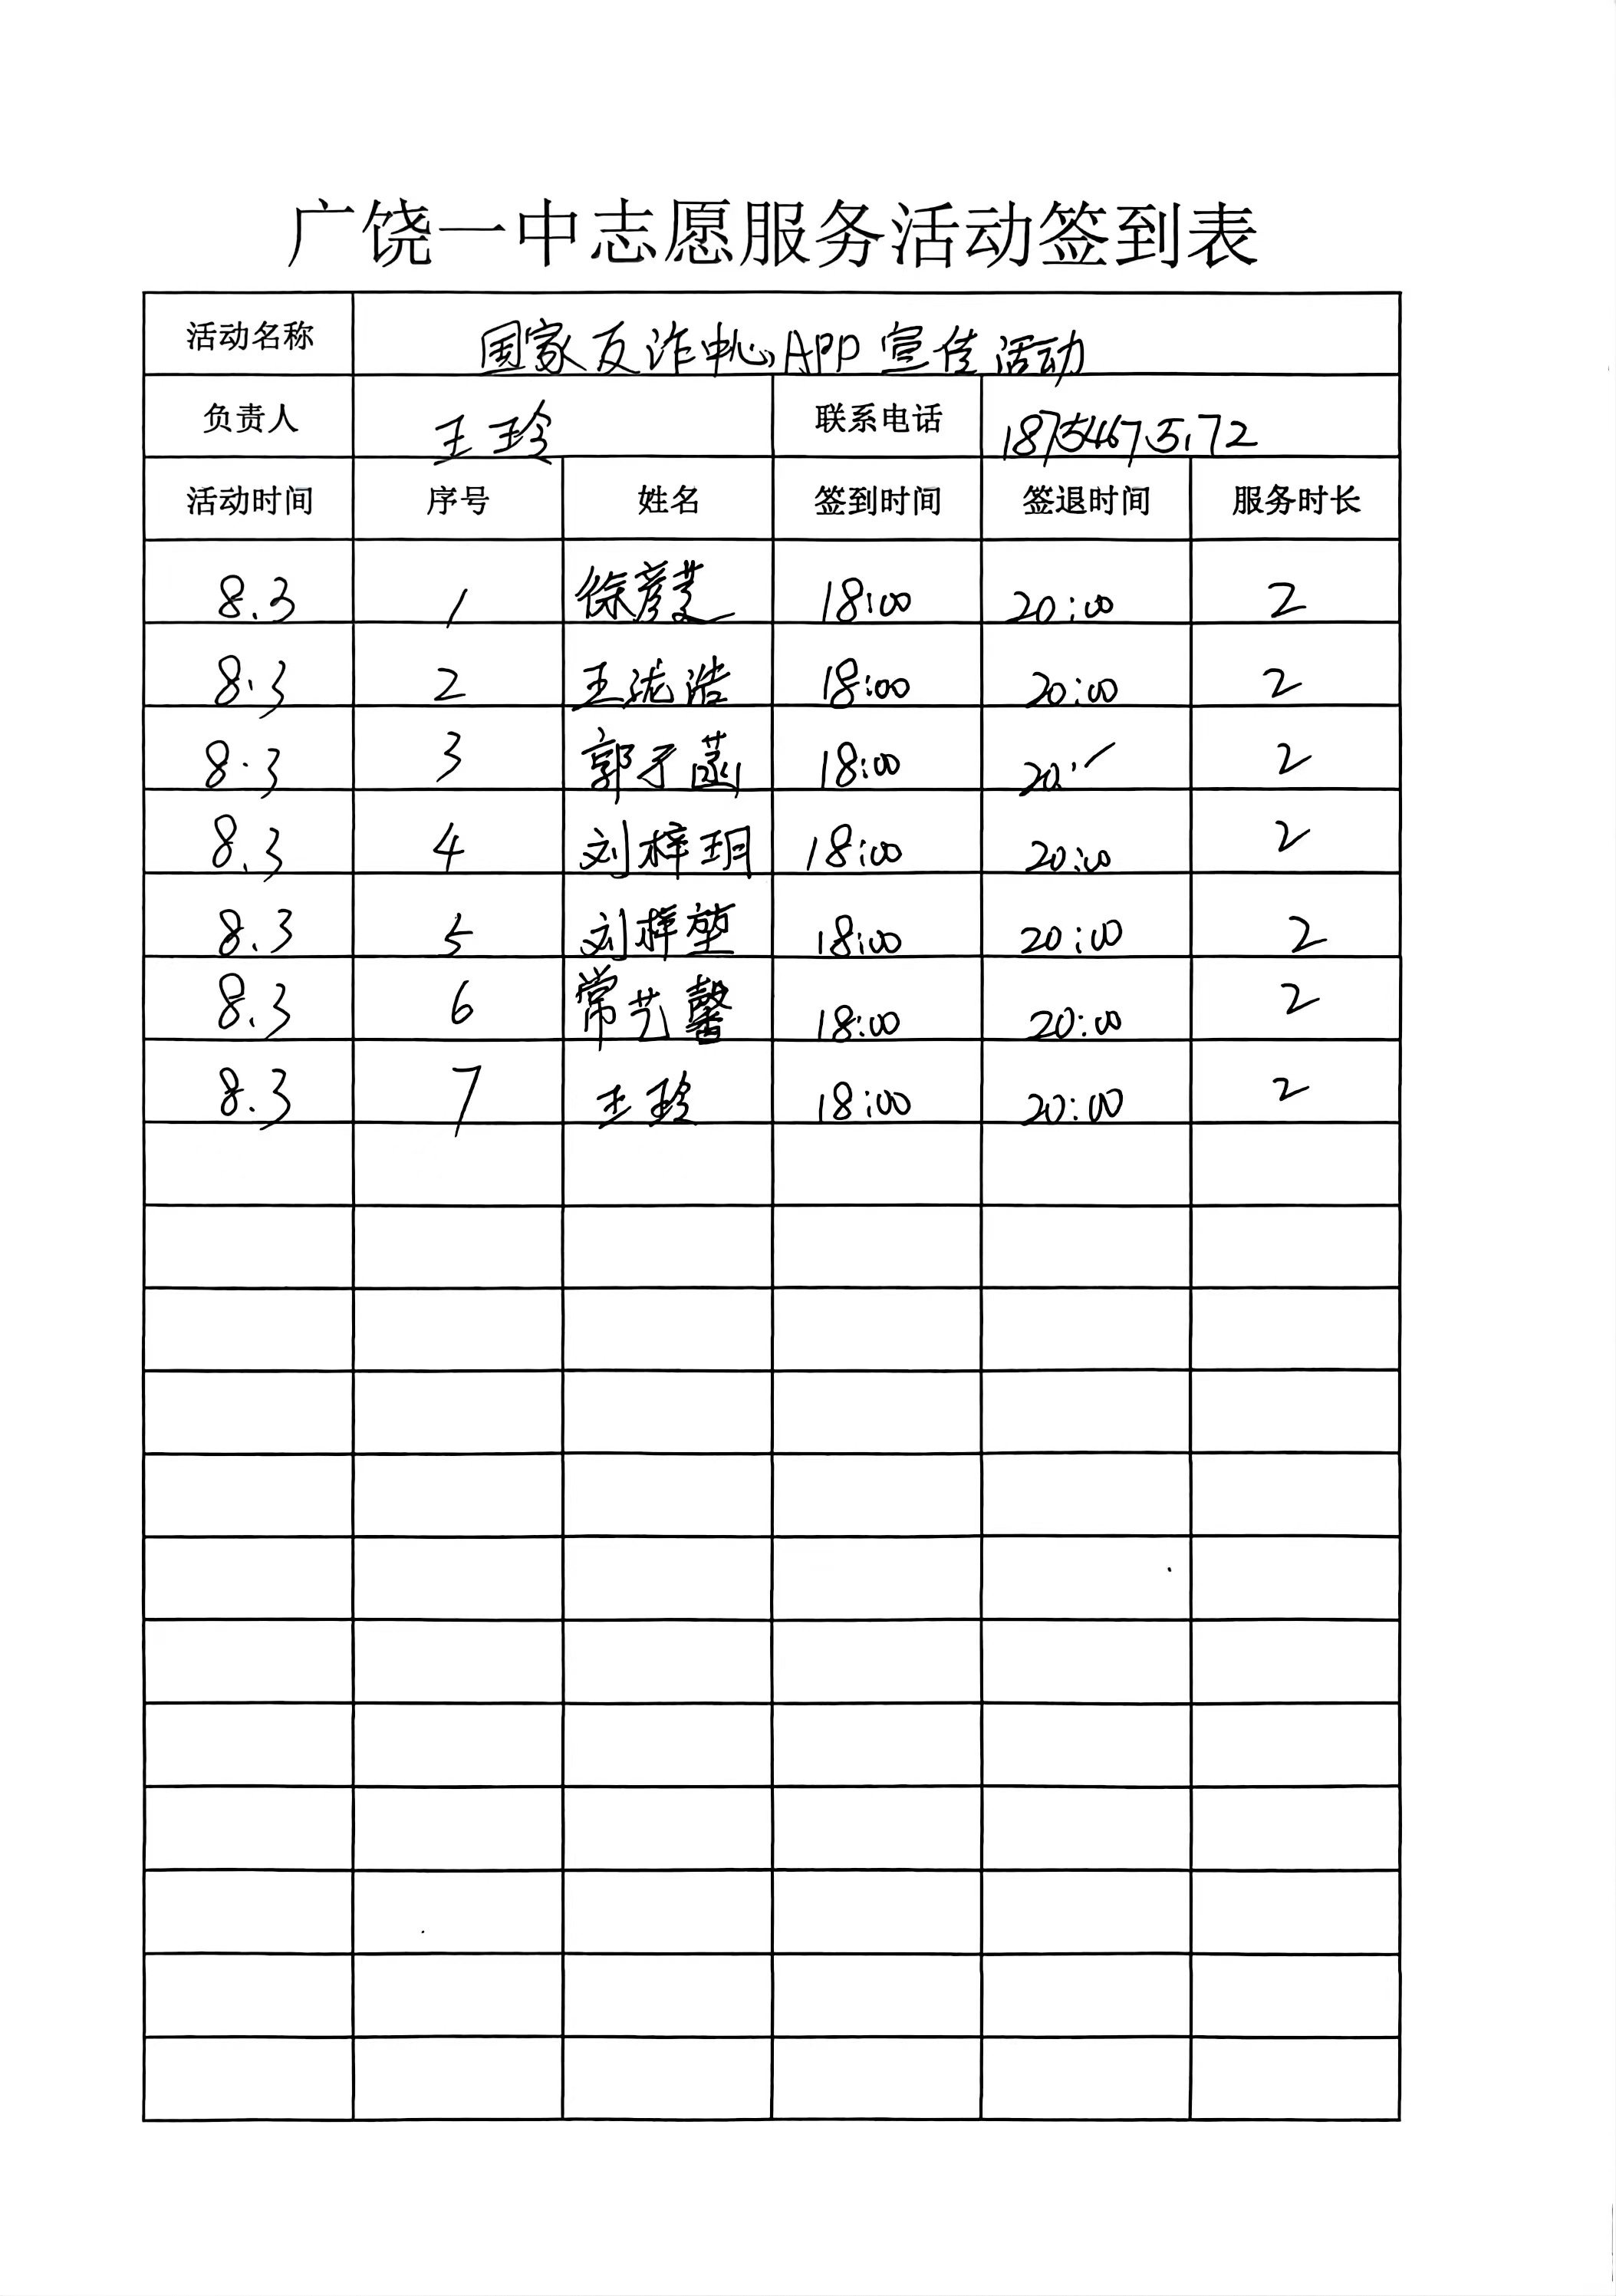 广饶一中志愿服务活动签到表
活动名称 国家反诈中心APP宣传活动
负责人 王玲 联系电话 18754675172
活动时间 序号 姓名 签到时间 签退时间 服务时长
8.3 1 徐彦芝 18:00 20:00 2
8.3 2 王浩 18:00 20:00 2
8.3 3 郭子菡 18:00 20: 2
8.3 4 刘梓玥 18:00 20:00 2
8.3 5 刘梓堃 18:00 20:00 2
8.3 6 常艺馨 18:00 20:00 2
8.3 7 王玲 18:00 20:00 2